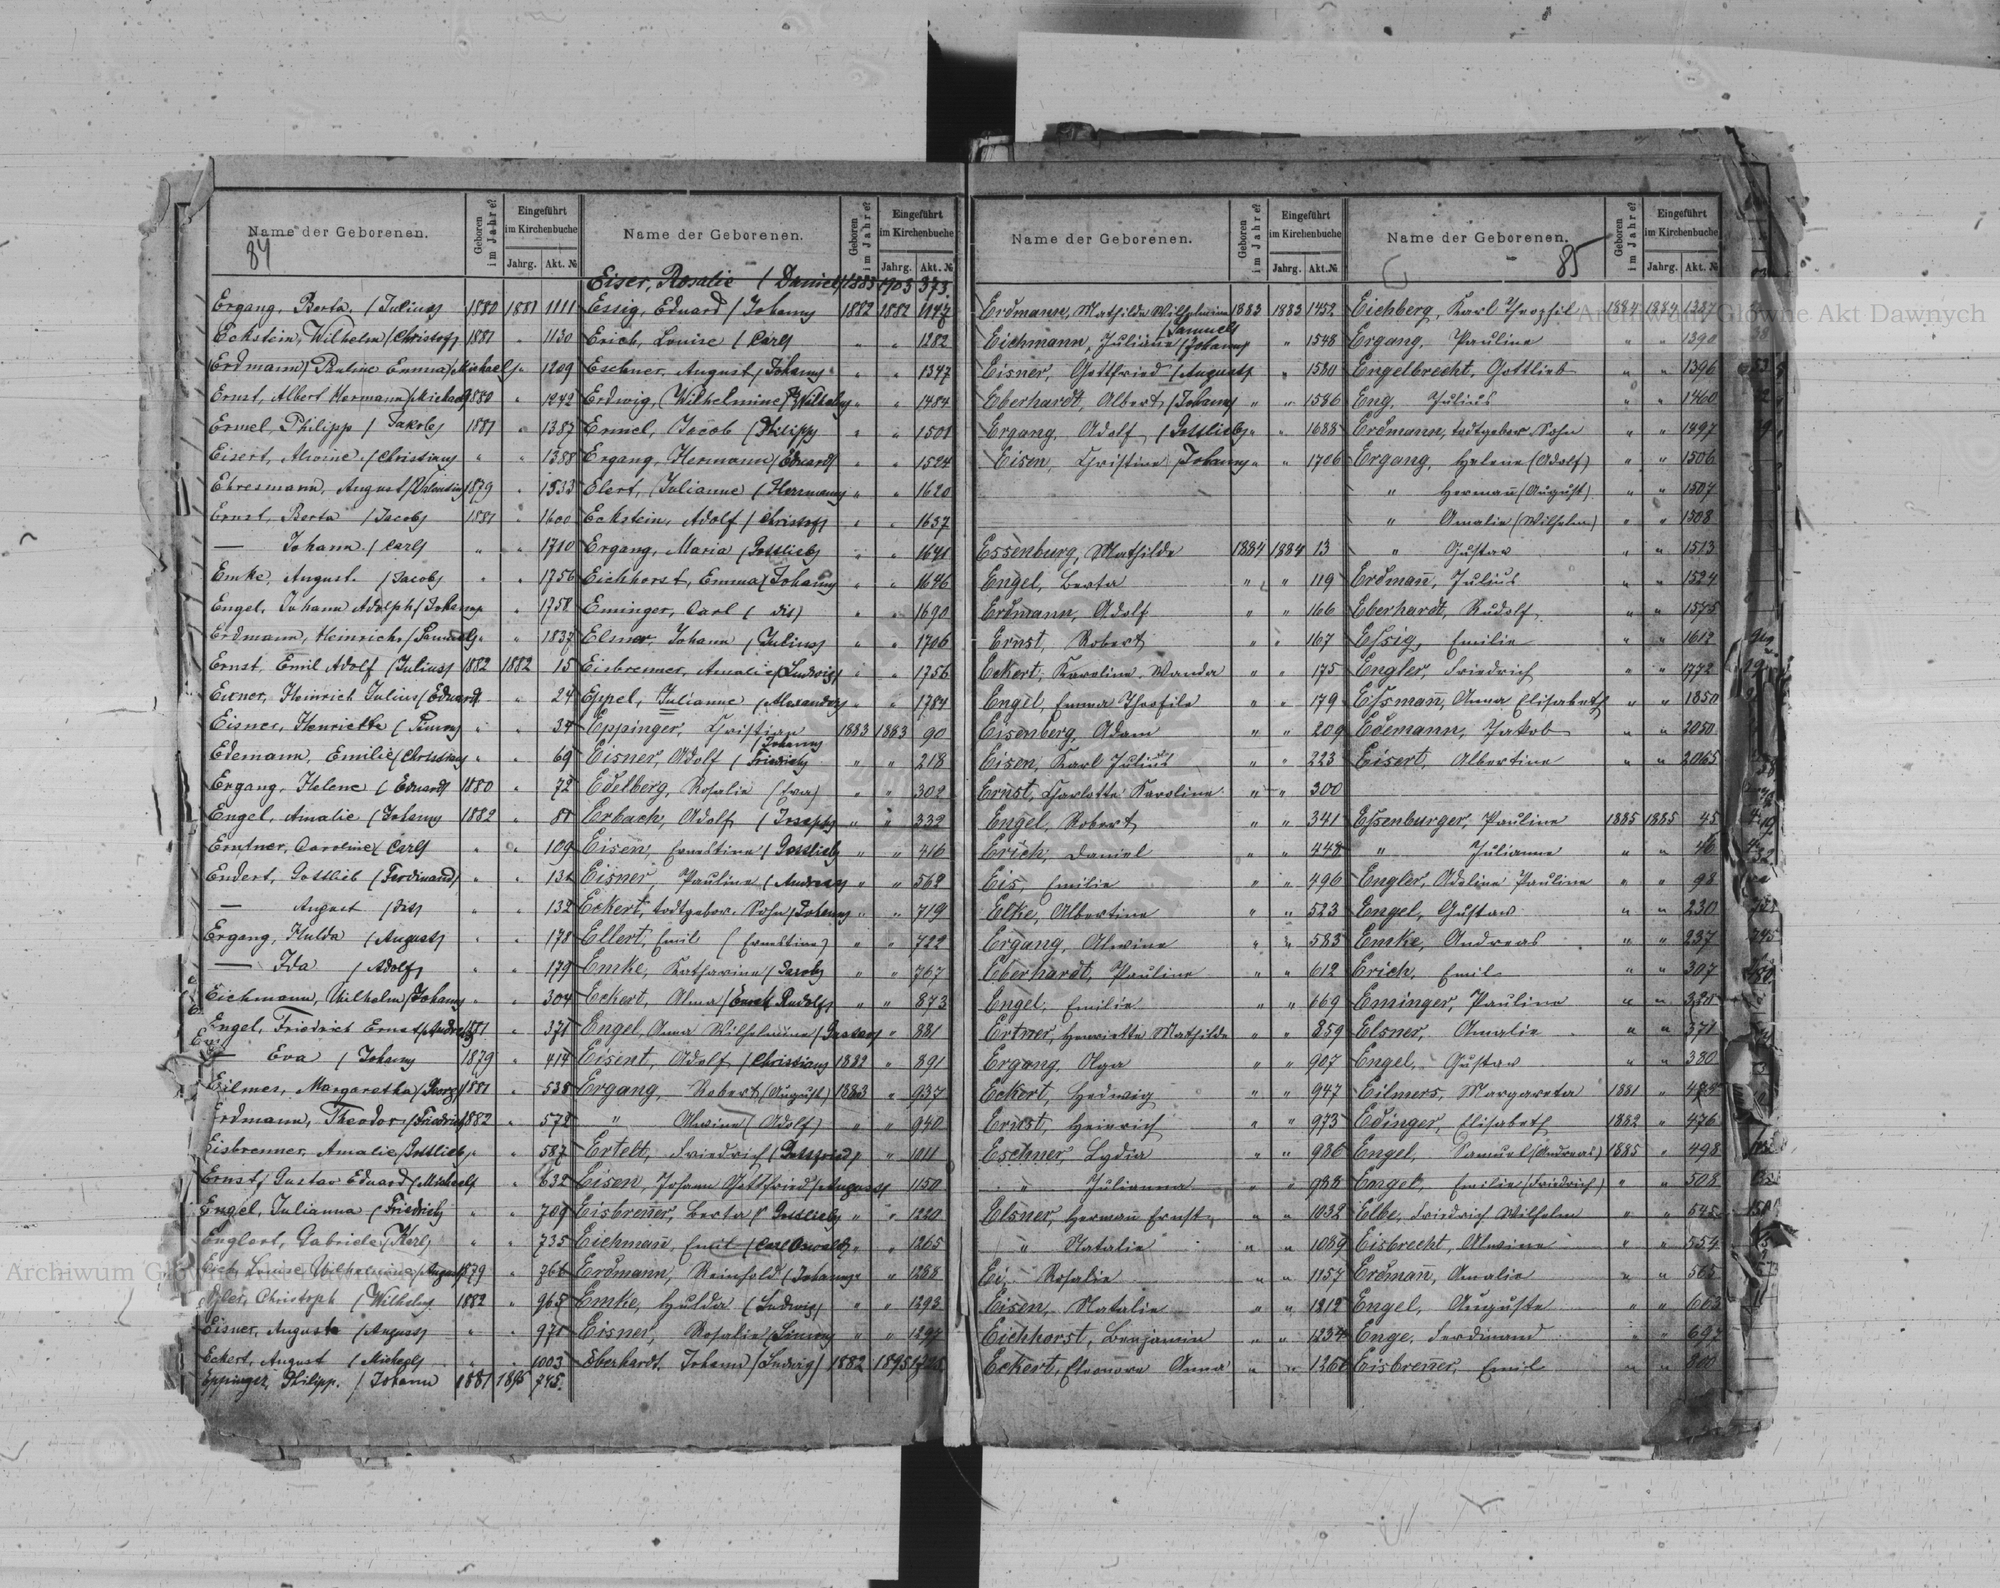 Name der Geborenen.
84
Geboren im Jahre?
Eingeführt im Kirchenbuche
Jahrg. Akt. №
Ergang, Berta (Julius) 1880 1881 1111
Eckstein, Wilhelm (Christof) 1881 " 1130
Erdmann, Pauline Emma (Michael) " " 1209
Ernst, Albert Hermann (Michael) 1880 " 1242
Ermel, Philipp (Jakob) 1881 " 1387
Eisert, Alwine (Christian) " " 1388
Ehresmann, August (Valentin) 1879 " 1533
Ernst, Berta (Jacob) 1881 " 1600
— Johann (Carl) " " 1710
Emke, August (Jacob) " " 1756
Engel, Johann Adolph (Johann) " 1758
Erdmann, Heinrich (Samuel) " " 1837
Ernst, Emil Adolf (Julius) 1882 1882 15
Heinrich Julius (Eduard) " 24
Eisner, Henriette (Simon) " " 34
Edemann, Emilie (Christian) " " 69
Ergang, Helene (Eduard) 1880 " 72
Engel, Amalie (Johann) 1882 " 81
Caroline (Carl) " " 109
Endert, Gottlieb (Ferdinand) " " 131
— August (dis) " " 132
Ergang, Hulda (August) " " 178
— Ida (Adolf) " " 179
Eichmann, Wilhelm (Johann) " " 304
Engel, Friedrich Ernst (Andreas) 1881 " 371
— Eva (Johann) 1879 " 414
Eilmes, Margaretha (Georg) 1881 " 538
Erdmann, Theodor (Friedrich) 1882 " 572
Eisbrenner, Amalie (Gottlieb) " " 587
Ernst, Gustav Eduard (Michael) " 632
Engel, Julianna (Friedrich) " " 709
Englert, Gabriele (Karl) " " 735
Louise Wilhelmine (August) 1879 "
Christoph (Wilhelm) 1882 " 965
Eisner, Auguste (August) " " 971
Eckert, August (Michael) " " 1003
Eppinger, Philipp. (Johann 1881 1895 745.
Name der Geborenen.
Geboren im Jahre?
Eingeführt im Kirchenbuche
Jahrg. Akt. №
Eiser, Rosalie (Daniel) 1885 1905 373
Essig, Eduard (Johann) 1882 1882
Erich, Louise (Carl) " " 1282
Eschner, August (Johann) " " 1347
Erdwig, Wilhelmine (Wilhelm) " " 1484
Ermel, Jacob (Philipp) " " 1501
Ergang, Hermann (Eduard) " " 1524
Elert, Julianne (Herrmann) " " 1620
Eckstein, Adolf (Christof) " " 1637
Ergang, Maria (Gottlieb) " " 1641
Eichhorst, Emma (Johann) " " 1646
Eminger, Carl (dis) " " 1690
Elsner, Johann (Julius) " " 1706
Eisbrenner, Amalie (Ludwig) " " 1756
Eppel, Julianne (Alexander) " " 1784
Eppinger, Christian (Johann) 1883 1883 90
Eisner, Adolf (Friedrich) " " 218
Edelberg, Rosalie (Eva) " " 302
Erbach, Adolf (Joseph) " " 332
Eisen, Ernestine (Gottlieb) " " 416
Eisner, Pauline (Andreas) " " 562
Eckert, todtgebor. Sohn (Johann) " " 719
Ellert, Emil (Ernestine) " " 722
Emke, Katharine (Jacob) " " 767
Eckert, Alma (Rudolf) " " 873
Engel, Anna Wilhelmine (Gustav) " 881
Eisent, Adolf (Christian) 1882 " 891
Ergang, Robert (August) 1883 " 937
" Alwine (Adolf) " " 940
Ertelt, Friedrich (Gottfried) " " 1011
Eisen, Johann Gottfried (August) " 1150
Eisbrenner, Berta (Gottlieb) " " 1220
Eichmann, Emil (Carl Oswald) " " 1265
Erdmann, Reinhold (Johann) " " 1288
Emke, Hulda (Ludwig) " " 1293
Eisner, Rosalie (Simon) " " 1297
Eberhardt, Johann (Ludwig) 1882 1895
Name der Geborenen.
Geboren im Jahre?
Eingeführt im Kirchenbuche
Jahrg. Akt. №
Erdmann, Mathilde Wilhelmine 1883 1883 1452
(Samuel)
Eichmann, Juliane (Johann) " 1548
Eisner, Gottfried (August) " " 1580
Eberhardt, Albert (Johann) " " 1586
Ergang, Adolf (Gottlieb) " " 1688
Eisen, Christine (Johann) " " 1706
Essenburg, Mathilde 1884 1884 13
Engel, Berta " " 119
Erdmann, Adolf " " 166
Ernst, Robert " " 167
Eckert, Karoline Wanda " " 175
Engel, Emma Theofile " " 179
Eisenberg, Adam " " 209
Eisen, Karl Julius " " 223
Ernst, Charlotte Karoline " " 300
Engel, Robert " " 341
Erich, Daniel " " 448
Eis, Emilie " " 496
Elke, Albertine " " 523
Ergang, Alwine " " 583
Eberhardt, Pauline " " 612
Engel, Emilie " " 669
Ertner, Henriette Mathilde " 859
Ergang, Olga " " 907
Eckert, Hedwig " " 947
Ernst, Heinrich " " 973
Eschner, Lydia " " 986
" Julianna " " 988
Elsner, Hermann Ernst " " 1032
" Natalie " " 1089
Ei, Rosalie " " 1157
Eisen, Natalie " " 1212
Eichhorst, Benjamin " " 1234
Eckert, Eleonora Anna " " 1260
Name der Geborenen.
85
Geboren im Jahre?
Eingeführt im Kirchenbuche
Jahrg. Akt. №
Eichberg, Karl Theophil 1884 1884 1387
Ergang, Pauline " " 1390
Engelbrecht, Gottlieb " " 1396
Eng, Julius " " 1460
Erdmann, todtgebor. Sohn " " 1497
Ergang, Helene (Adolf) " " 1506
" Hermann (August) " " 1507
" Amalie (Wilhelm) " " 1508
" Gustav " " 1513
Erdmann, Julius " " 1524
Eberhardt, Rudolf " " 1575
Essig, Emilie " " 1612
Engler, Friedrich " " 1772
Essmann, Anna Elisabeth " " 1850
Edemann, Jakob " " 2050
Eisert, Albertine " " 2065
Essenburger, Pauline 1885 1885 45
" Julianne " " 46
Engler, Adeline Pauline " " 98
Engel, Gustav " " 230
Emke, Andreas " " 237
Erich, Emil " " 307
Eminger, Pauline " "
Elsner, Amalie " " 371
Engel, Gustav " " 380
Eilmers, Margareta 1881 "
Edinger, Elisabeth 1882 " 476
Engel, Samuel (Andreas) 1885 " 498
Engel, Emilie (Friedrich) " " 508
Elbe, Friedrich Wilhelm " " 545
Eisbrecht, Alwine " " 554
Erdmann, Amalie " " 565
Engel, Auguste " " 663
Enge, Ferdinand " "
Eisbrenner, Emil " " 800
Archiwum Główne Akt Dawnych